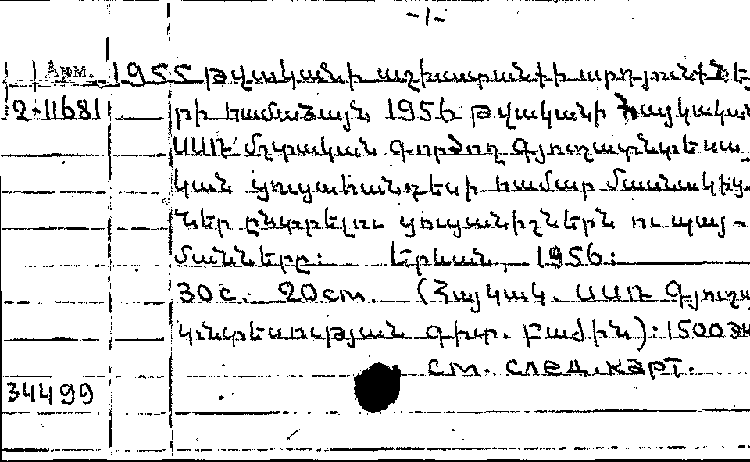 -1-
Арм. 1955 թվականի աշխատանքի արդյունքնե
2-11681 րի համաձայն 1956 թվականի Հայկական
ՍՍՌ մշտական գործող գյուղատնտեսա
կան ցուցահանդեսի համար մասնակից-
ներ ընտրելու ցուցանիշներն ու պայ-
մանները: Երևան, 1956:
30 с. 20 cm. (Հայկակ. ՍՍՌ Գյուղ
կնտեսության գիտ. բաժին): 1500
см. след. карт.
34499